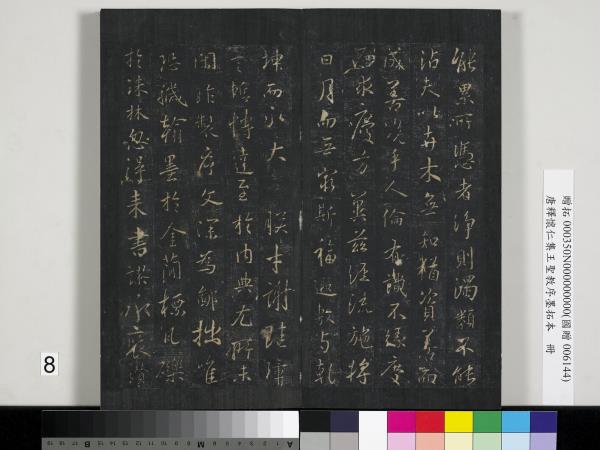 能累所憑者淨則濁類不能
沾夫以卉木無知猶資善而
成善況乎人倫有識不緣慶
而求慶方冀茲經流施將
日月而無窮斯福遐敷與乾
坤而永大 朕才謝珪璋
言慚博達至於內典尤所未
閑昨製序文深為鄙拙唯
恐穢翰墨於金簡標瓦礫
於珠林忽得來書謬承褒讚
贈拓 000350N000000000(國贈 006144)
唐釋懷仁集王聖教序墨拓本 冊
8
A 1 2 3 4 5 6 M 8 9 10 11 12 13 14 15 B 17 18 19